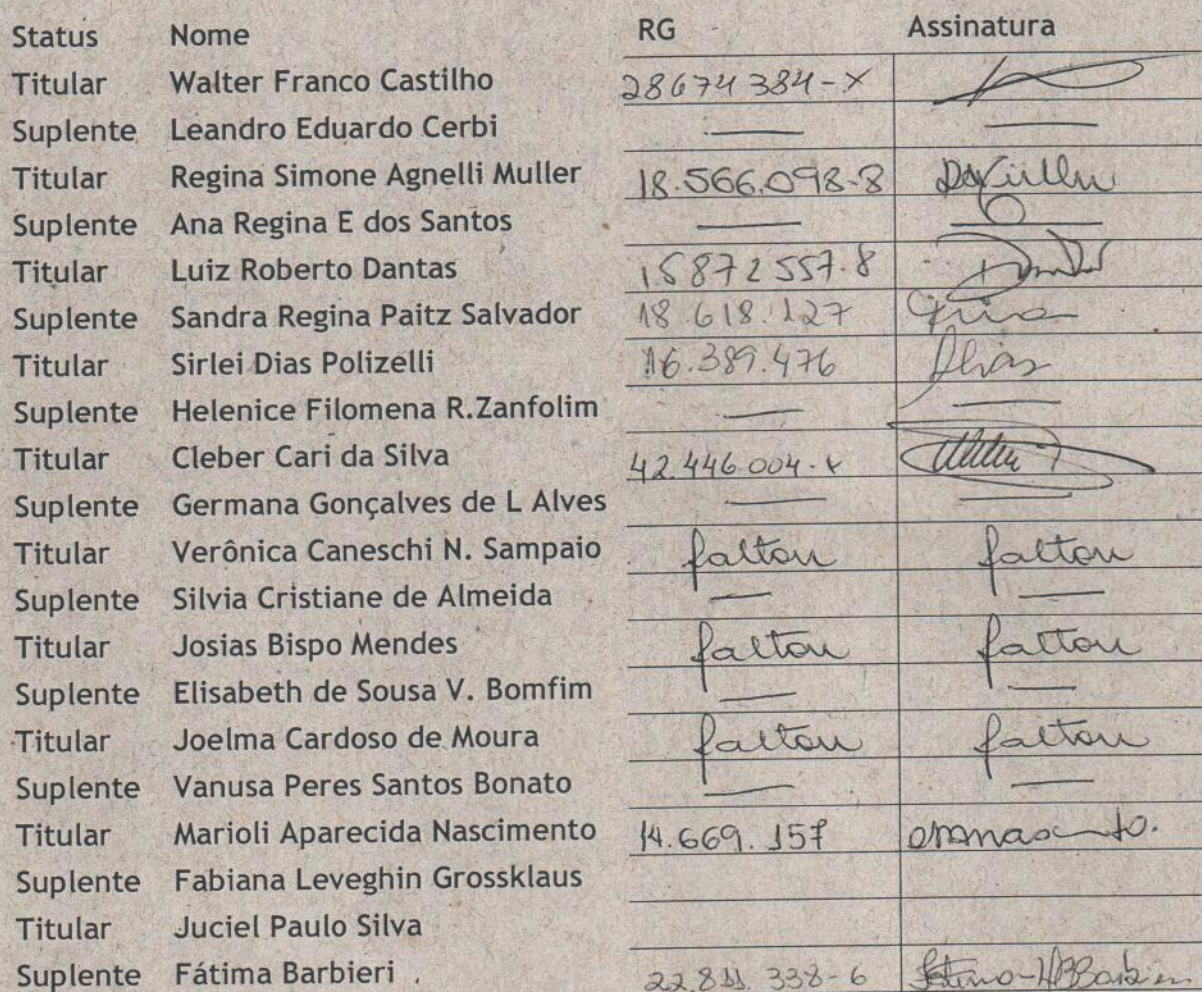 Status Nome RG Assinatura
Titular Walter Franco Castilho 28674384-X
Suplente Leandro Eduardo Cerbi
Titular Regina Simone Agnelli Muller 18.566.098-8
Suplente Ana Regina E dos Santos
Titular Luiz Roberto Dantas 15872557.8
Suplente Sandra Regina Paitz Salvador 18.618.127
Titular Sirlei Dias Polizelli 16.389.476 Dias
Suplente Helenice Filomena R.Zanfolim
Titular Cleber Cari da Silva 42.446.004-x
Suplente Germana Gonçalves de L Alves
Titular Verônica Caneschi N. Sampaio faltou faltou
Suplente Silvia Cristiane de Almeida
Titular Josias Bispo Mendes faltou faltou
Suplente Elisabeth de Sousa V. Bomfim
Titular Joelma Cardoso de Moura faltou faltou
Suplente Vanusa Peres Santos Bonato
Titular Marioli Aparecida Nascimento 14.669.157
Suplente Fabiana Leveghin Grossklaus
Titular Juciel Paulo Silva
Suplente Fátima Barbieri 22.811.338-6